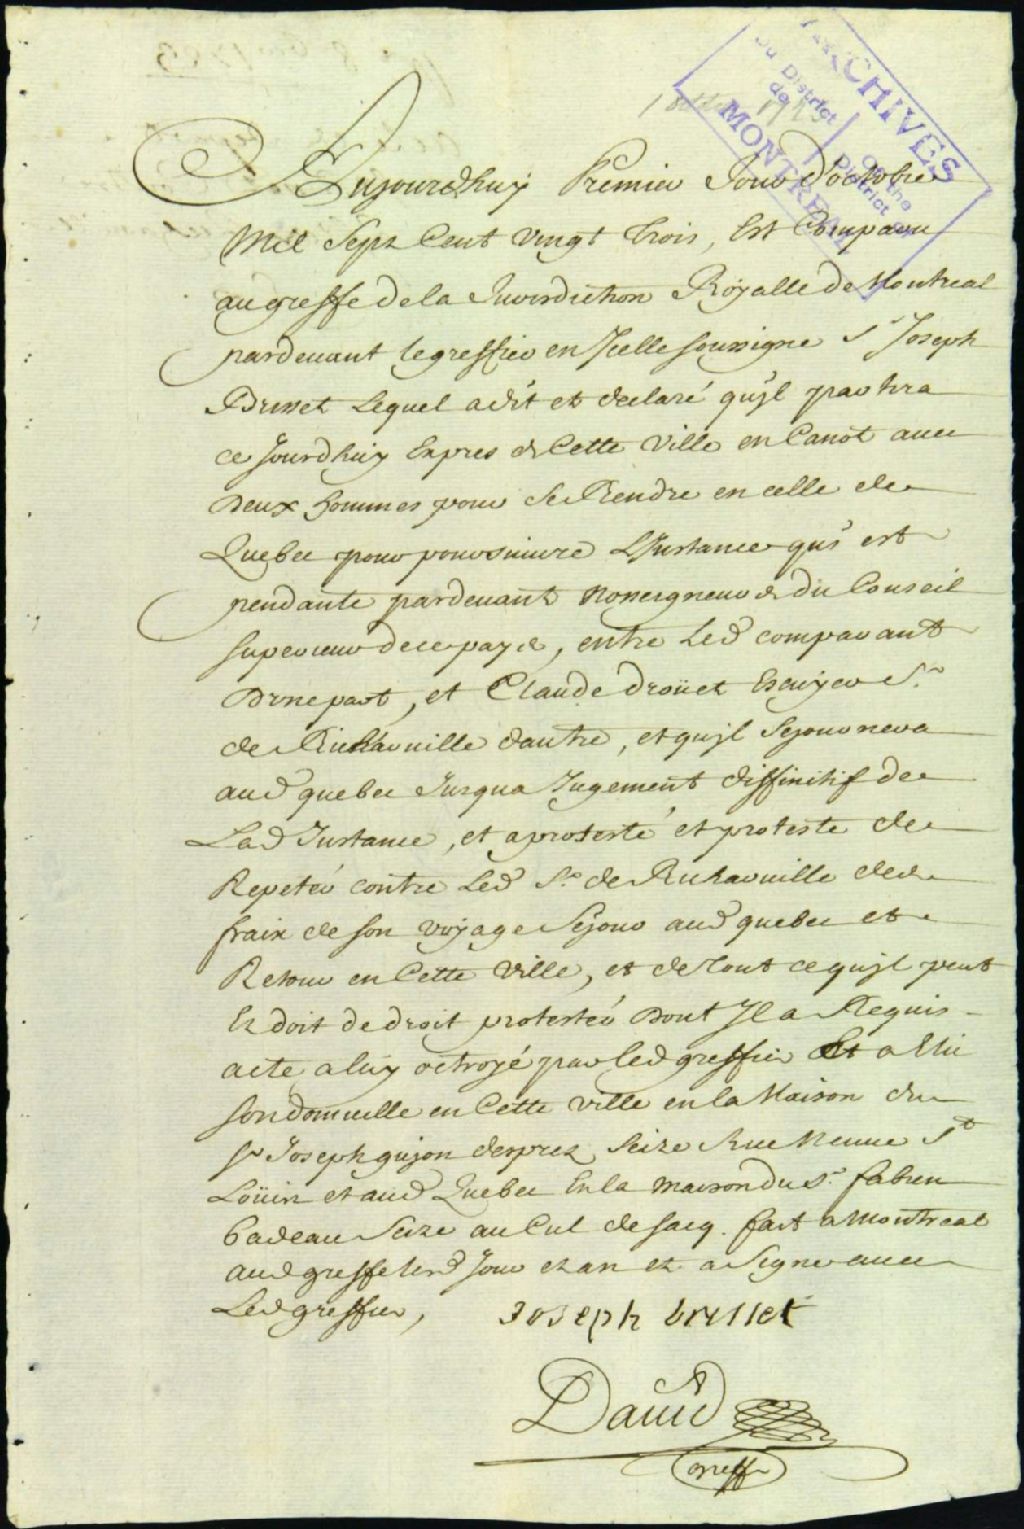 1 8bre 1723
ARCHIVES
Du District
de
MONTREAL
of the
District
Aujourdhuy Premier Jour d'octobre
Mil Sept Cent vingt trois, Est Comparu
au greffe de la Jurisdiction Royalle de Montreal
pardevant le greffier en Jcelle soussigné Sr Joseph
Brusset Lequel a dit et declaré qu'jl partira
ce Jourdhuy Expres de Cette ville en Canot avec
Deux hommes pour se Rendre en celle de
Quebec pour poursuivre L'Jnstance qui est
pendante pardevant Nosseigneurs du Conseil
superieur de ce pays, entre Led comparant
D'une part, et Claude Droüet Escuyer Sr
de Richarville d'autre, et qu'jl sejournera
aud quebec Jusqua Jugement diffinitif de
Lad Jnstance, et a protesté et proteste de
Repeter contre Led Sr de Richarville des
fraix de son voyage Sejour aud quebec et
Retour en Cette ville, et de tout ce qu'jl peut
Et doit de droit protester Dont Jl a Requis
acte a luy octroyé par led greffier Et a Elu
son domicille en Cette ville en la Maison du
Sr Joseph gujon desprez Seize Rue Neuve St
Loüis et aud Quebec En la maison du Sr fabien
badeau Seize au Cul de sacq. fait a Montreal
aud greffe lesd Jour et an et a Signé avec
Led greffier,
Joseph brusset
David
greff